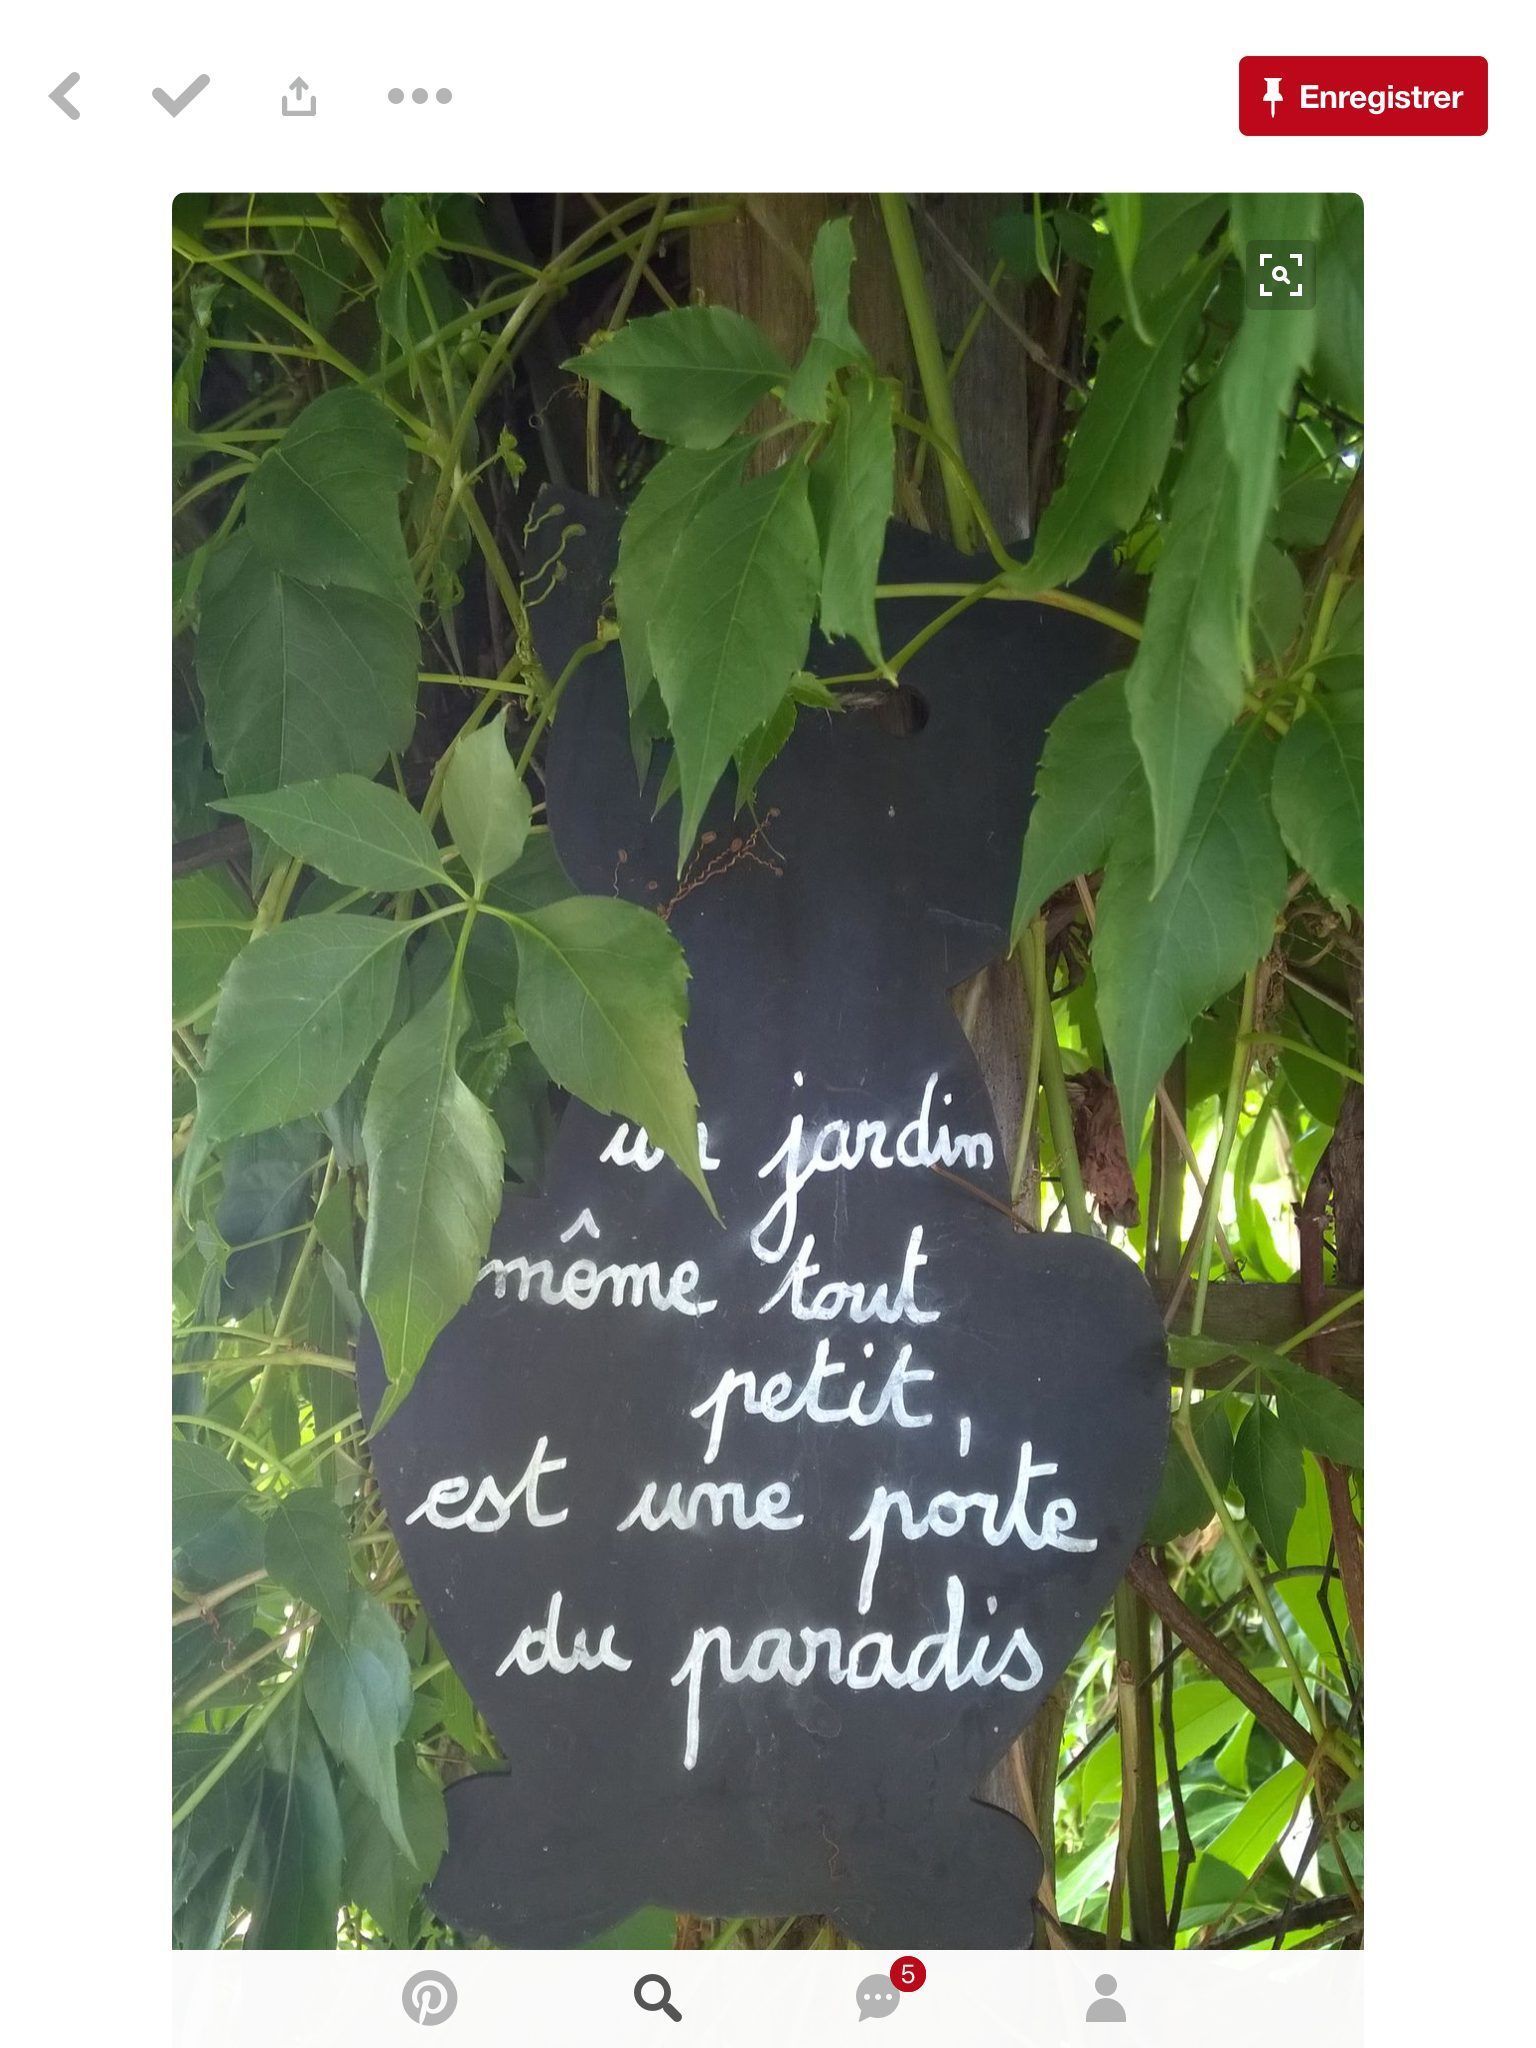 Enregistrer
un jardin
môme tout
petit,
est une porte
du paradis
5